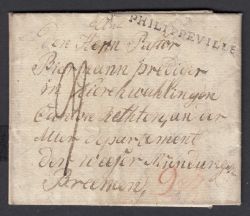 PHILIPPEVILLE
den Herrn Pastor
prediger
in Kirchwahlingen
Canton Rethem an der
Aller departement
der Weser Mündung
Bremen